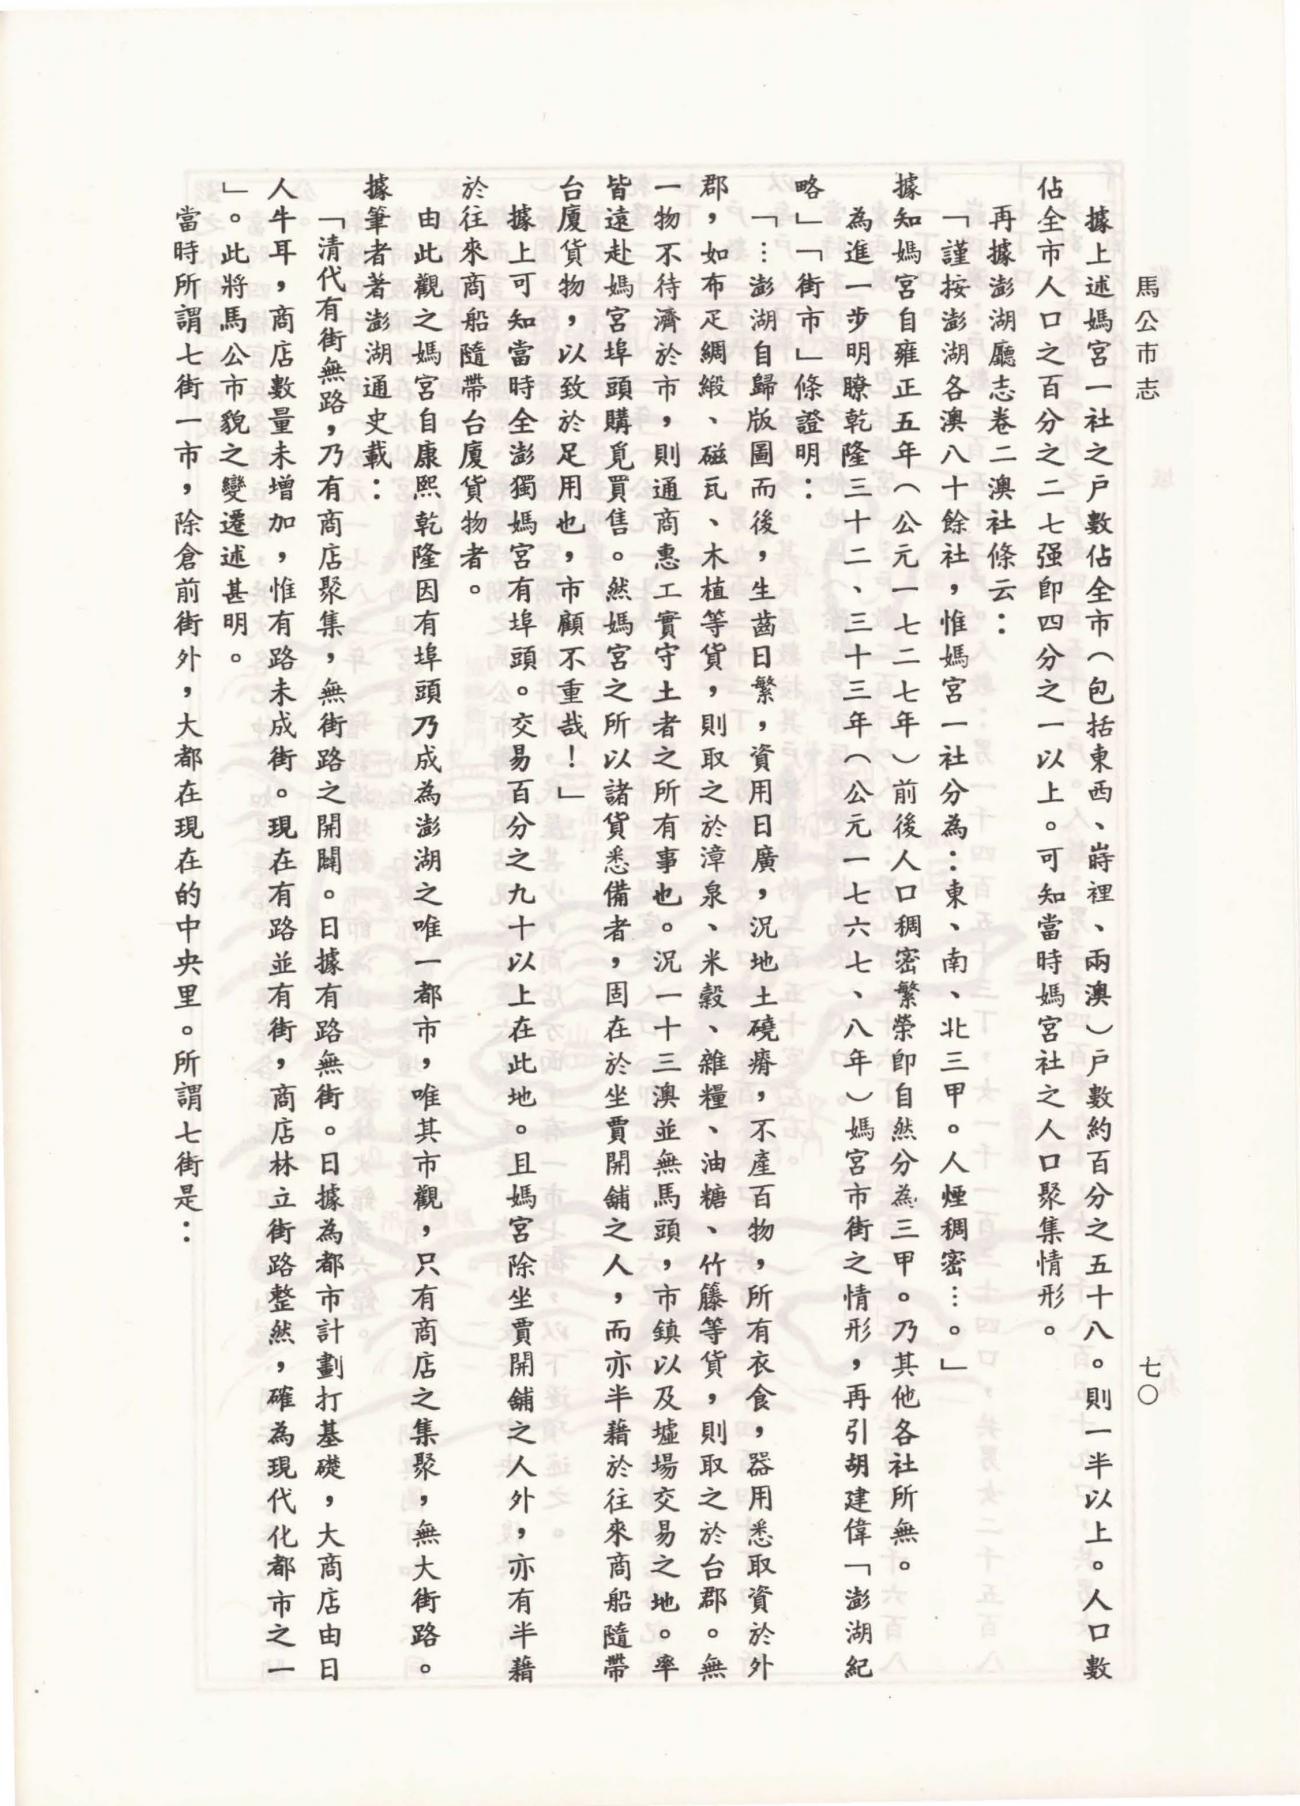 馬公市志
七〇
據上述媽宮一社之戶數佔全市（包括東西、嵵裡、兩澳）戶數約百分之五十八。則一半以上。人口數
佔全市人口之百分之二七强卽四分之一以上。可知當時媽宮社之人口聚集情形。
再據澎湖廳志卷二澳社條云：
「謹按澎湖各澳八十餘社，惟媽宮一社分為：東、南、北三甲。人煙稠密…。」
據知媽宮自雍正五年（公元一七二七年）前後人口稠密繁榮卽自然分為三甲。乃其他各社所無。
為進一步明瞭乾隆三十二、三十三年（公元一七六七、八年）媽宮市街之情形，再引胡建偉「澎湖紀
略」「街市」條證明：
「…澎湖自歸版圖而後，生齒日繁，資用日廣，況地土磽瘠，不產百物，所有衣食，器用悉取資於外
郡，如布疋綢緞、磁瓦、木植等貨，則取之於漳泉、米穀、雜糧、油糖、竹籐等貨，則取之於台郡。無
一物不待濟於市，則通商惠工實守土者之所有事也。況一十三澳並無馬頭，市鎮以及墟場交易之地。率
皆遠赴媽宮埠頭購覓買售。然媽宮之所以諸貨悉備者，固在於坐賈開舖之人，而亦半藉於往來商船隨帶
台廈貨物，以致於足用也，市顧不重哉！」
據上可知當時全澎獨媽宮有埠頭。交易百分之九十以上在此地。且媽宮除坐賈開舖之人外，亦有半藉
於往來商船隨帶台廈貨物者。
由此觀之媽宮自康熙乾隆因有埠頭乃成為澎湖之唯一都市，唯其市觀，只有商店之集聚，無大街路。
據筆者著澎湖通史載：
「清代有街無路，乃有商店聚集，無街路之開闢。日據有路無街。日據為都市計劃打基礎，大商店由日
人牛耳，商店數量未增加，惟有路未成街。現在有路並有街，商店林立街路整然，確為現代化都市之一
」。此將馬公市貌之變遷述甚明。
當時所謂七街一市，除倉前街外，大都在現在的中央里。所謂七街是：